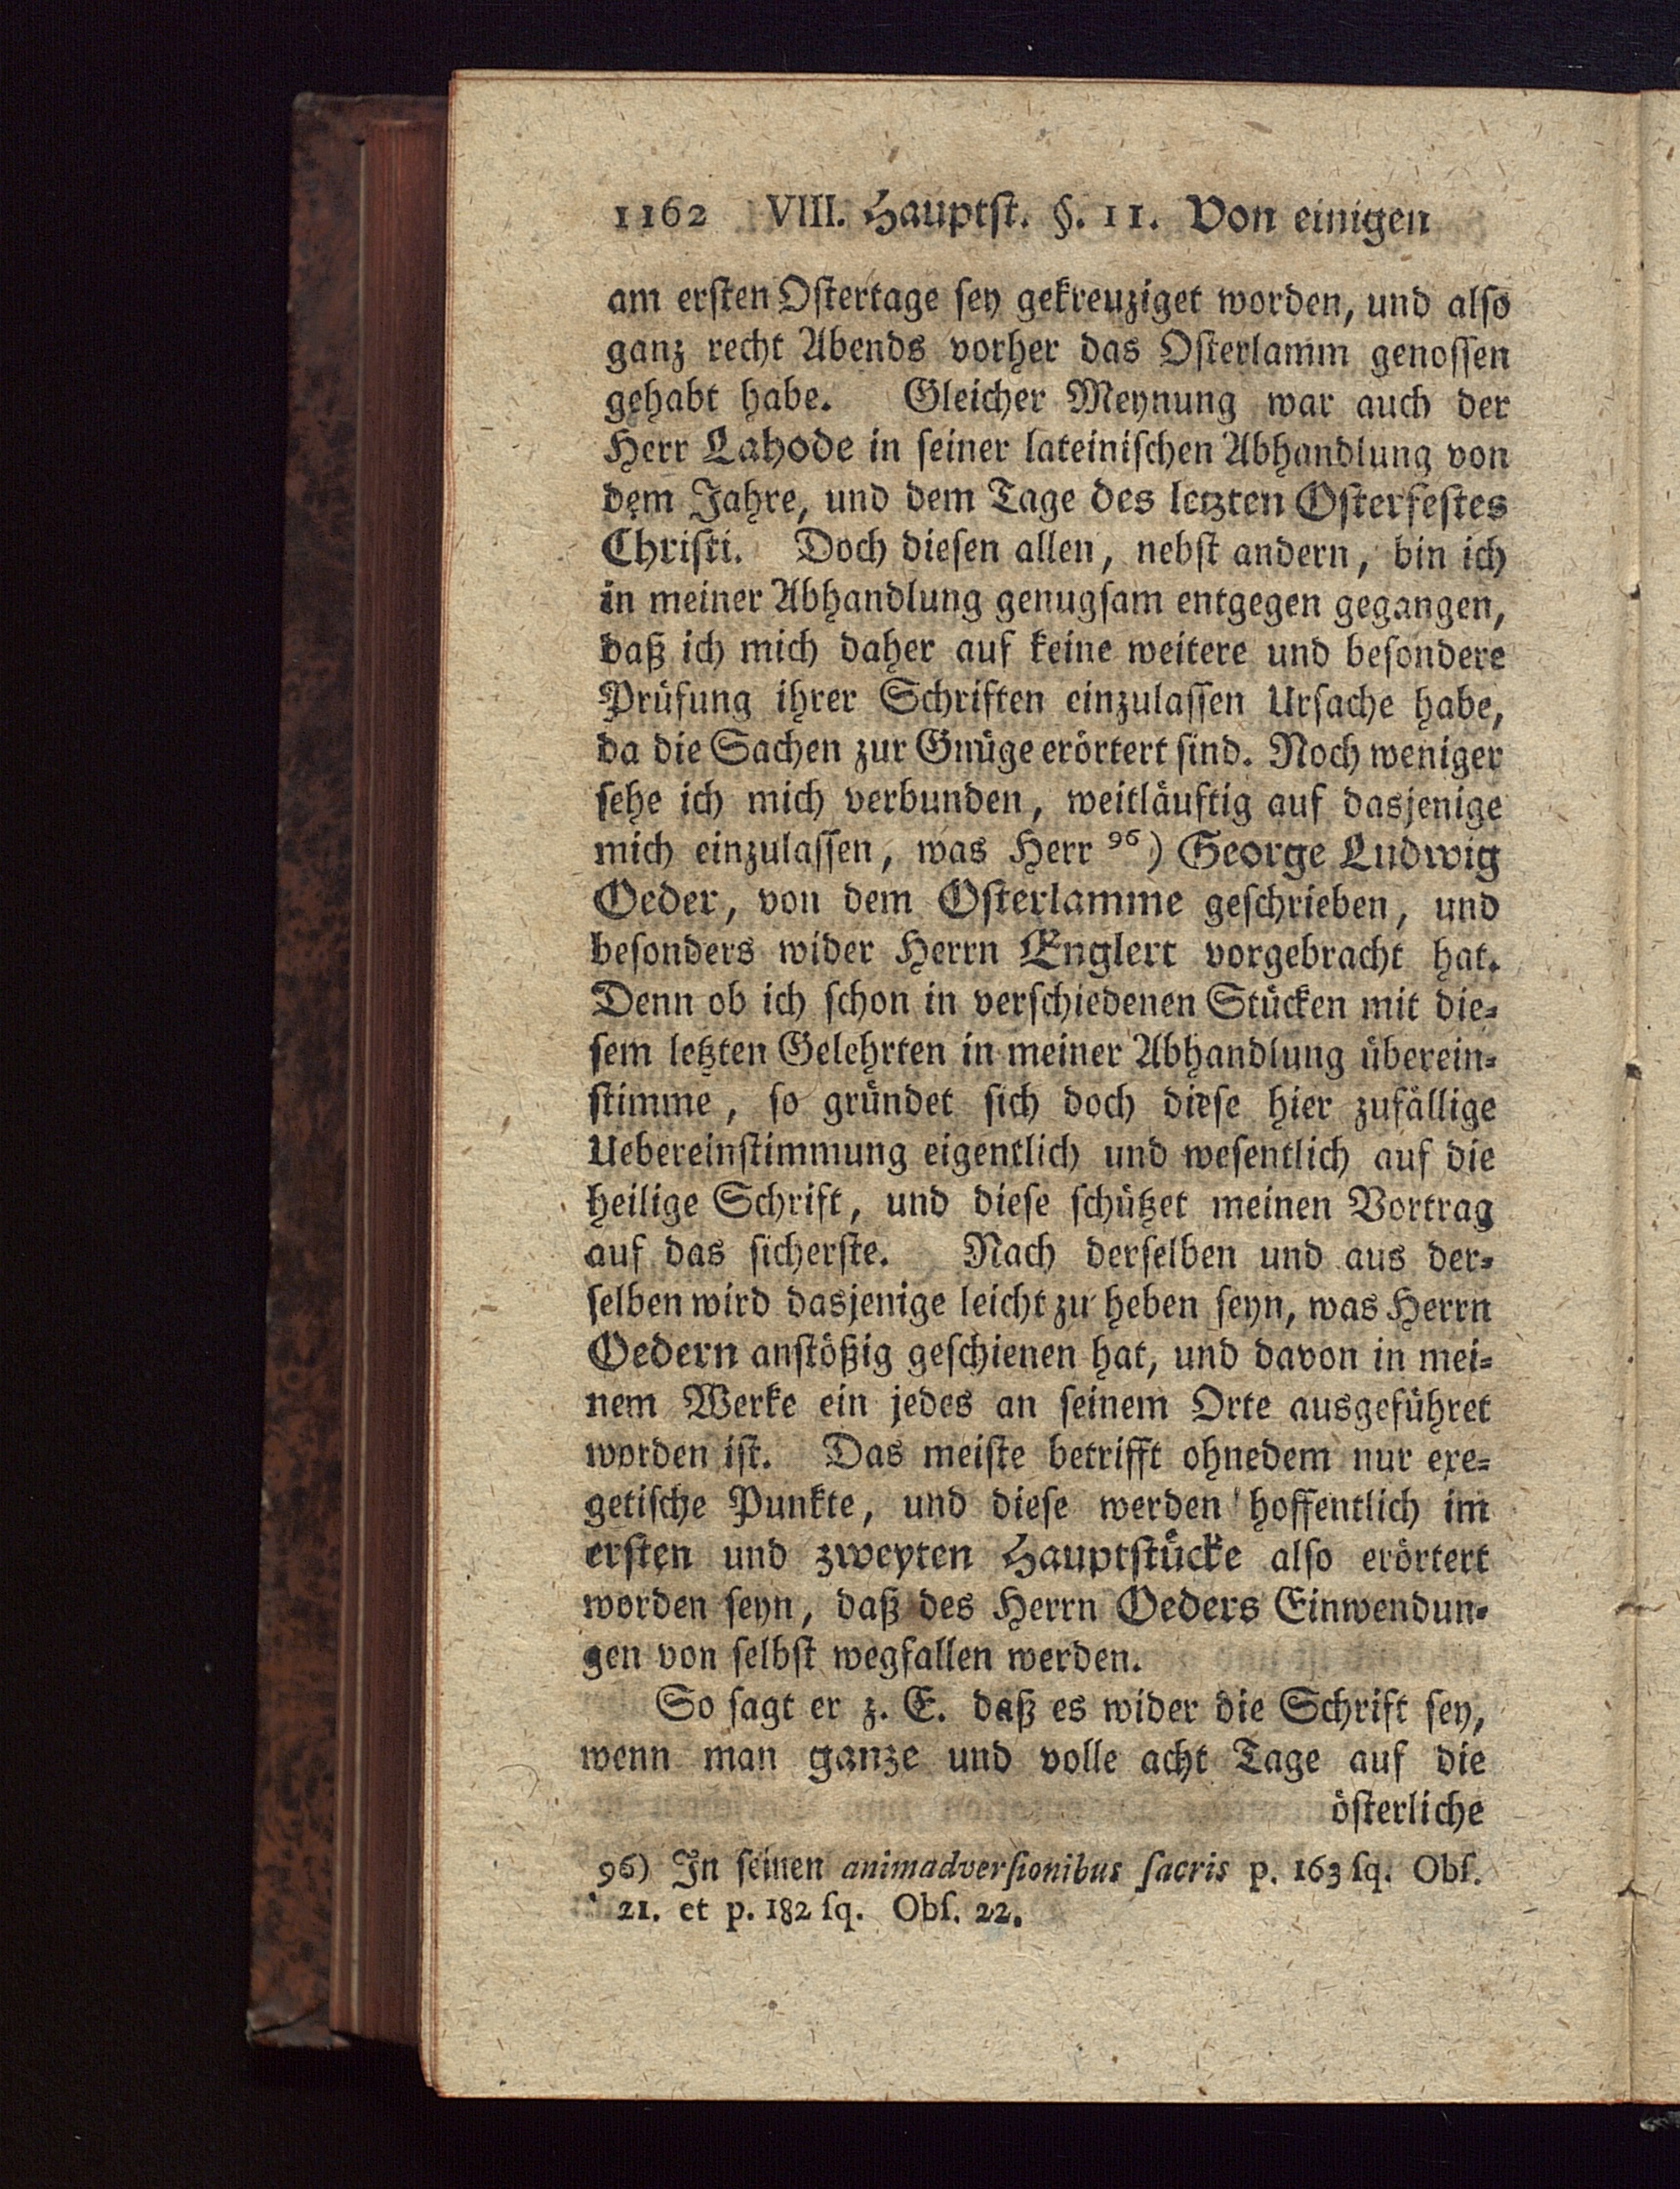 1162 VIII. Hauptſt. §. 11. Von einigen
am erſten Oſtertage ſey gekreuziget worden, und alſo
ganz recht Abends vorher das Oſterlamm genoſſen
gehabt habe. Gleicher Meynung war auch der
Herr Lahode in ſeiner lateiniſchen Abhandlung von
dem Jahre, und dem Tage des letzten Oſterfeſtes
Chriſti. Doch dieſen allen, nebſt andern, bin ich
in meiner Abhandlung genugſam entgegen gegangen,
daß ich mich daher auf keine weitere und beſondere
Prüfung ihrer Schriften einzulaſſen Urſache habe,
da die Sachen zur Gnüge erörtert ſind. Noch weniger
ſehe ich mich verbunden, weitläuftig auf dasjenige
mich einzulaſſen, was Herr 96) George Ludwig
Oeder, von dem Oſterlamme geſchrieben, und
beſonders wider Herrn Englert vorgebracht hat.
Denn ob ich ſchon in verſchiedenen Stücken mit die⸗
ſem letzten Gelehrten in meiner Abhandlung überein⸗
ſtimme, ſo gründet ſich doch dieſe hier zufällige
Uebereinſtimmung eigentlich und weſentlich auf die
heilige Schrift, und dieſe ſchützet meinen Vortrag
auf das ſicherſte. Nach derſelben und aus der⸗
ſelben wird dasjenige leicht zu heben ſeyn, was Herrn
Oedern anſtößig geſchienen hat, und davon in mei⸗
nem Werke ein jedes an ſeinem Orte ausgeführet
worden iſt. Das meiſte betrifft ohnedem nur exe⸗
getiſche Punkte, und dieſe werden hoffentlich im
erſten und zweyten Hauptſtücke alſo erörtert
worden ſeyn, daß des Herrn Oeders Einwendun⸗
gen von ſelbſt wegfallen werden.
So ſagt er z. E. daß es wider die Schrift ſey,
wenn man ganze und volle acht Tage auf die
öſterliche
96) In ſeinen animadverſionibus ſacris p. 163 ſq. Obſ.
21. et p. 182 ſq. Obſ. 22.